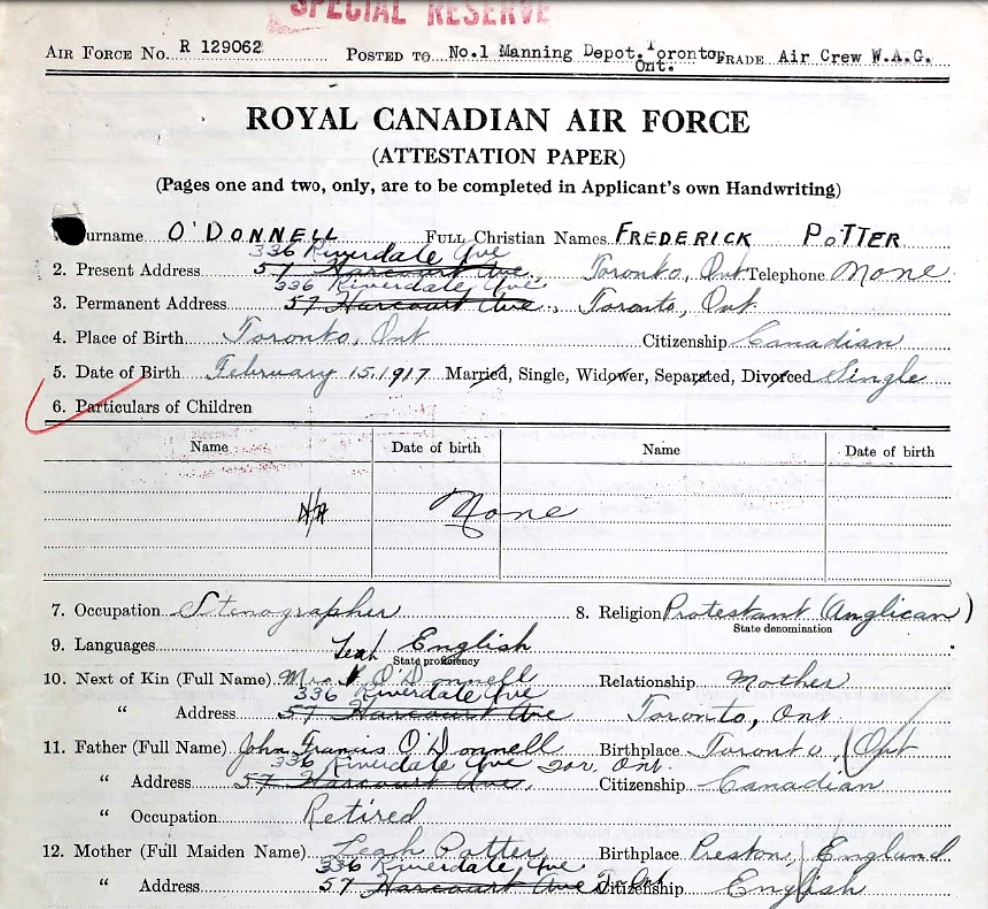 SPECIAL RESERVE
AIR FORCE No. R 129062 POSTED TO No.1 Manning Depot. Toronto Ont. TRADE Air Crew W.A.G.
ROYAL CANADIAN AIR FORCE
(ATTESTATION PAPER)
(Pages one and two, only, are to be completed in Applicant's own Handwriting)
urname O'DONNELL FULL Christian Names FREDERICK POTTER
336 Riverdale Ave
2. Present Address 57 Harcourt Ave., Toronto, Ont Telephone None
336 Riverdale Ave
3. Permanent Address 57 Harcourt Ave., Toronto, Ont.
4. Place of Birth Toronto, Ont Citizenship Canadian
5. Date of Birth February 15, 1917 Married, Single, Widower, Separated, Divorced Single
6. Particulars of Children
Name Date of birth Name Date of birth
None
7. Occupation Stenographer 8. Religion Protestant (Anglican)
State denomination
9. Languages English
State proficiency
Leah
10. Next of Kin (Full Name) Mrs O'Donnell Relationship Mother
336 Riverdale Ave
" Address 57 Harcourt Ave Toronto, Ont.
11. Father (Full Name) John Francis O'Donnell Birthplace Toronto, Ont
336 Riverdale Ave Tor. Ont.
" Address 57 Harcourt Ave, Citizenship Canadian
" Occupation Retired
12. Mother (Full Maiden Name) Leah Potter Birthplace Preston, England
336 Riverdale Ave
" Address 57 Harcourt Ave Citizenship English